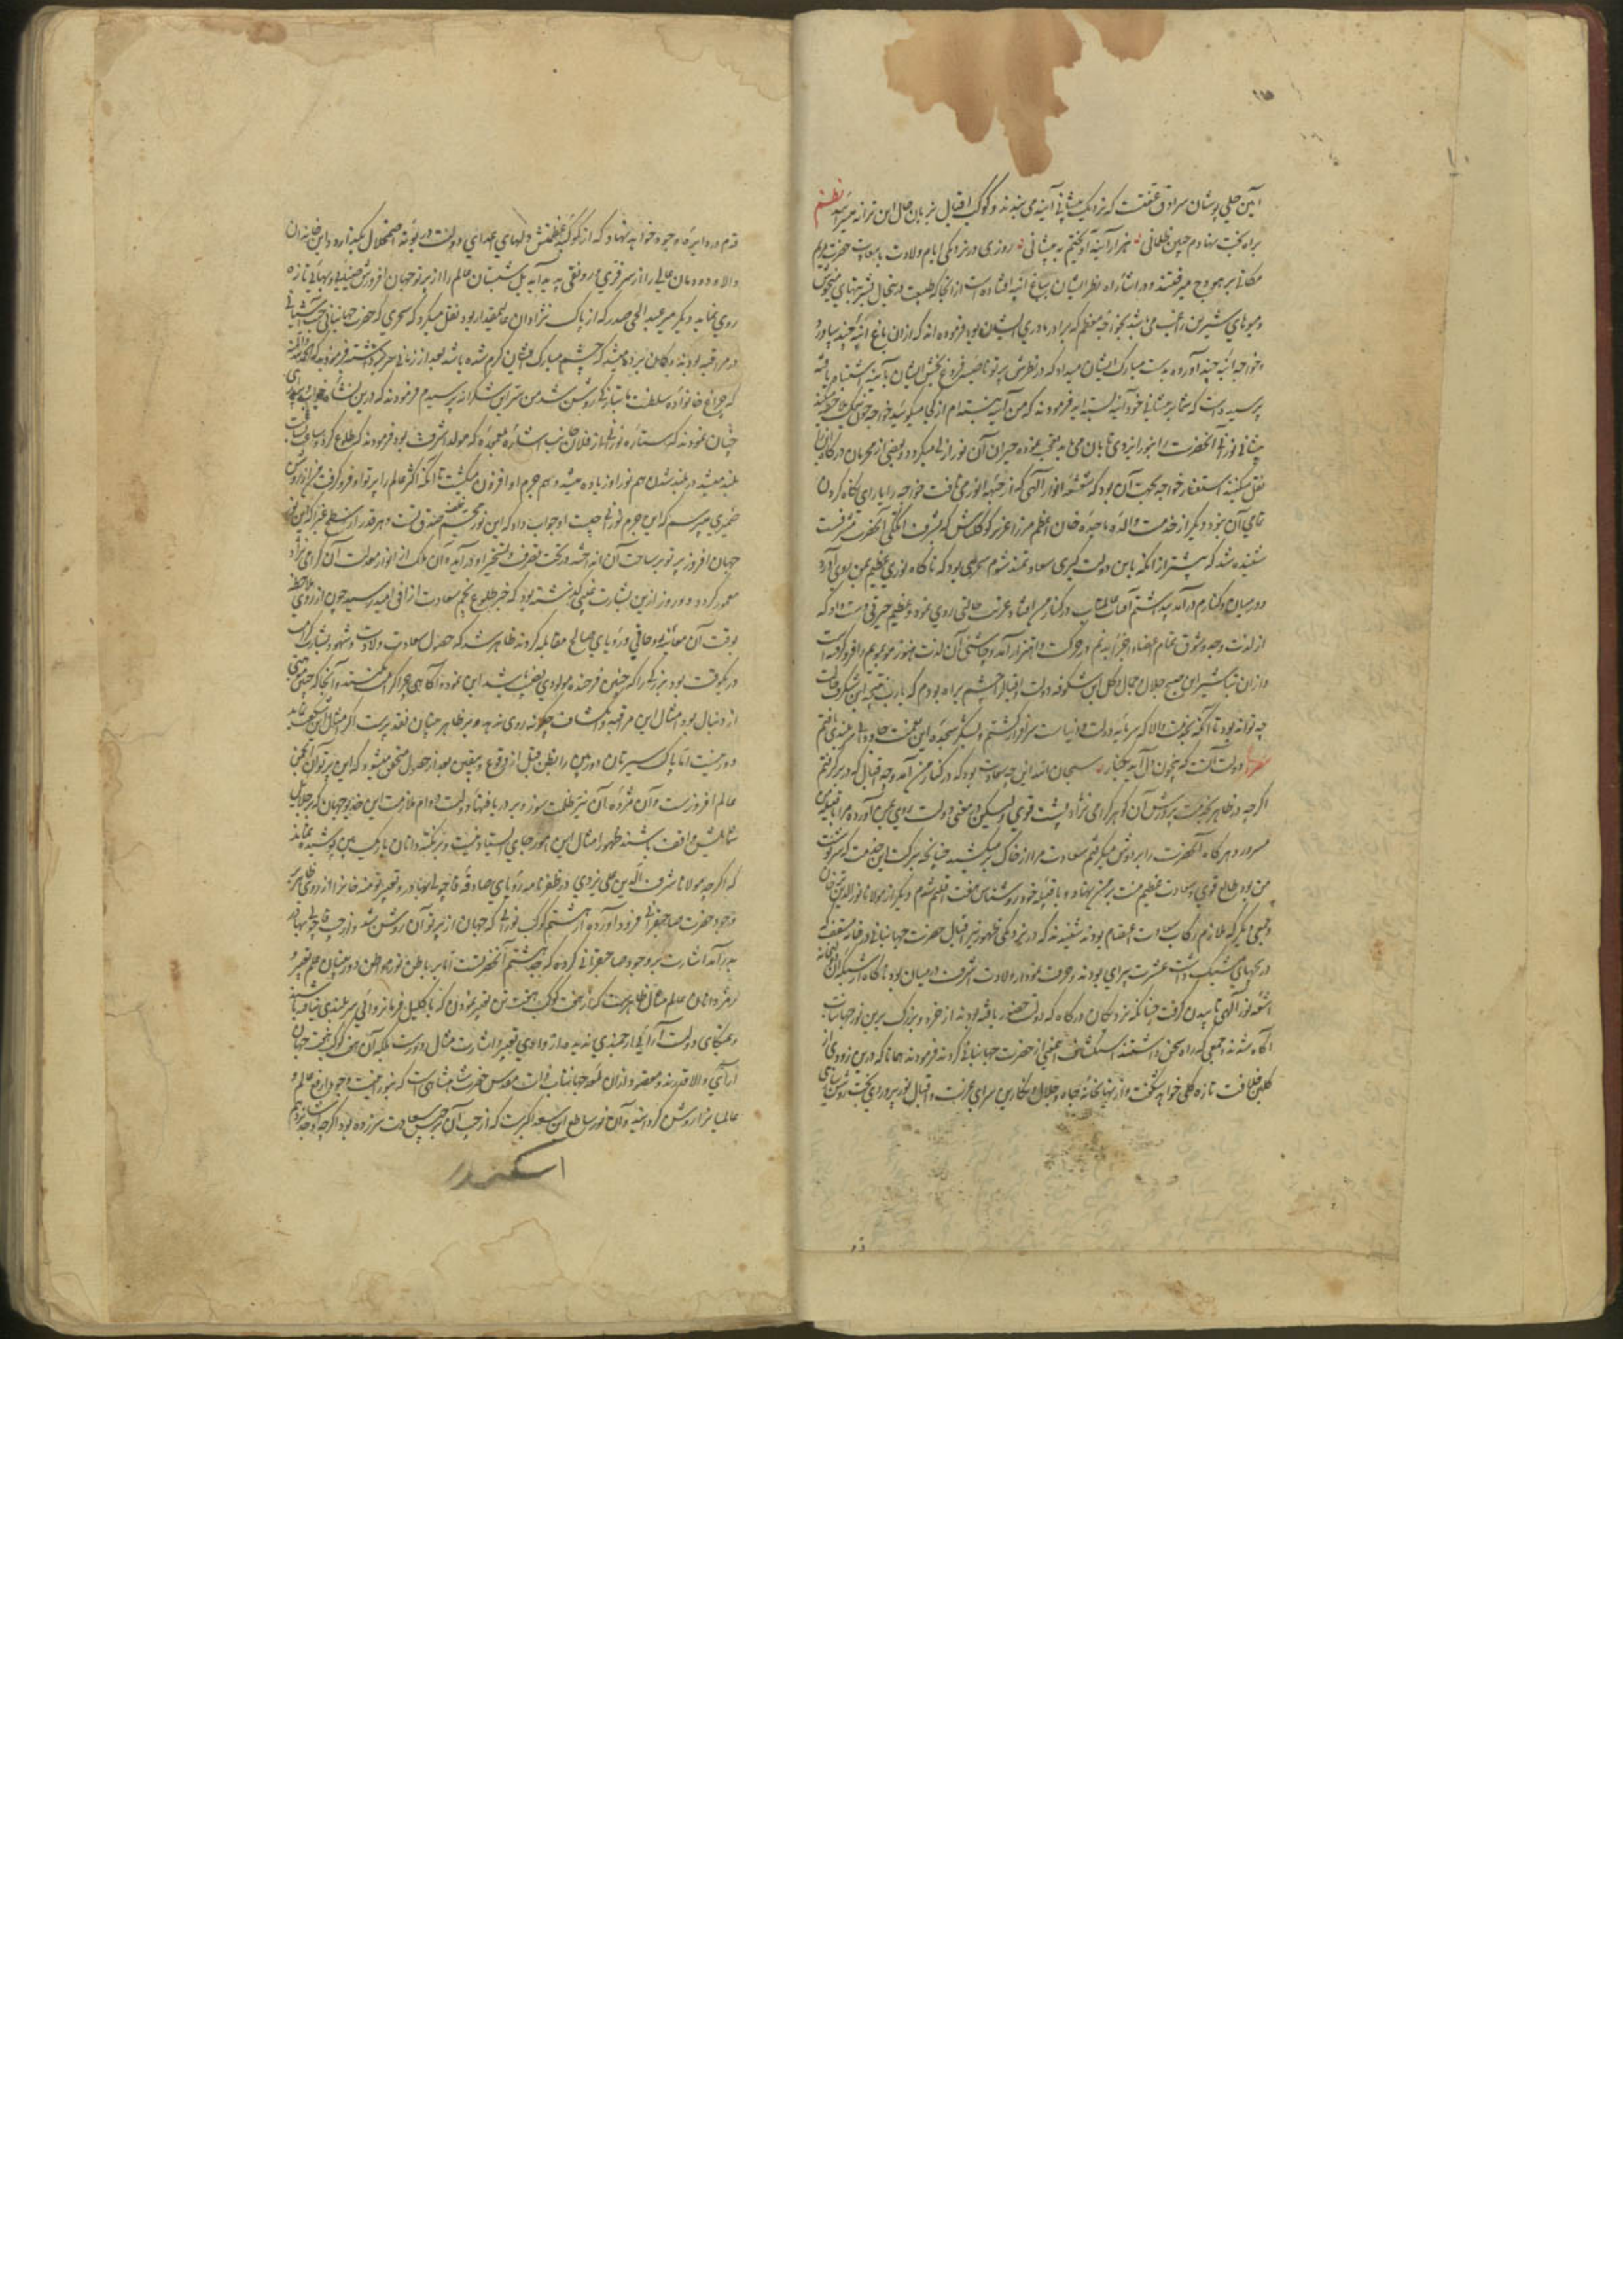 آیین جلی پوشان سرادق عفتست که نزدیک پیشانی آینه می بندند و کوکب اقبال بزبان حال این ترانه میسراید نظم
براه بخت نهادم جبین ظلمانی هزار آینه آویختم به پیشانی روزی در نزدیکی ایام ولادت با سعادت حضرت مریم
مکانی بر هودج میرفتند و در اثنای راه نظر ایشان بباغ انبه افتاده است از آنجا که طبیعت در چنین حال بشربتهای میخوش
و میوهای شیرین راغب می باشد بخواجه معظم که برادر مادری ایشان بود فرموده اند که ازان باغ انبه چند بیاورد
خواجه انبه چند آورده بدست مبارک ایشان میداد که در نظرش پرتو ناصیه فروغ بخش ایشان بآینه اشتباه یافته
پرسیده است که شما بر پیشانی خود آینه بسته اید فرمودند که من آینه نبسته ام از کجا میگوئید خواجه چون نیک ملاحظه میکند
پیشانی نورانی آنحضرت را بنور ایزدی تابان می یابد تعجب نموده حیران آن نور ازلی میگردد و بعضی از محرمان درگاه
نقل میکند استفسار خواجه بجهت آن بود که شعشعه انوار الهی که از جبهه انوری تافت خواجه را یارای نگاه کردن
نمی آن نبود دیگر از خدمت والده ماجده خان اعظم مرزا عزیز کوکلتاش که بشرف انگگی آنحضرت مشرفست
شنیده شد که پیشتر ازانکه باین دولت کبری سعادتمند شوم سحری بود که ناگاه نوری عظیم بمن روی آورد
در میان کنارم درآمد پنداشتم آفتاب عالمتاب در کنار من افتاد غریب حالتی روی نمود و عظیم حیرتی دست داد که
از لذت وجد و شوق تمام اعضاء و اجزای بدنم در حرکت و اهتزاز آمد و چاشنی آن لذت هنوز مو بمویم را فرو گرفته است
و ازان تباشیر این صبح جلال و جمال و گل این شکوفه دولت و اقبال را چشم براه بودم که یارب نتیجه این شگرف حالت
چه تواند بود تا آنکه بخدمت والا که سرمایه دولت دنیاست سرافراز گشتم و بشکر سجده این نعمت جاودانی سربلندی یافتم
مصرع دولت آنست که بیخون دل آید بکنار سبحان الله این چه سعادت بود که در کنار من آمد و چه اقبال که در بر گرفتم
اگرچه در ظاهر بخدمت پرورش آن گوهر گرامی نژاد پشت قوی ولیکن در معنی دولت روی بمن آورده مرا با قبیله من
میپرورد هرگاه آنحضرت را بر دوش میگرفتم سعادت مرا از خاک برمیکشید چنانچه ببرکت این خدمت که سرنوشت
من بود بطالع قوی و سعادت عظیم منت بر من نهاد و با قبیله خود روشناس هفت اقلیم شدم و دیگر از مولانا نورالدین ترخان
و جمعی دیگر که ملازم رکاب سعادت اعتصام بودند شنیدند که در نزدیکی ظهور نیر اقبال حضرت جهانبانی در خانه مسقف که
دریچهای مشبک داشت عشرت پیرای بودند و حرف نمودار ولادت اشرف در میان بود ناگاه از شبکهای آنخانه
اشعه نور الهی تابیدن گرفت چنانکه نزدیکان درگاه که دولت حضور یافته بودند از خرد و بزرگ برین نور جهانتاب
آگاه شدند و جمعی که راه سخن داشتند استکشاف این معنی از حضرت جهانبانی کردند فرمودند همانا که درین زودی از
گلبن خلافت تازه گلی خواهد شگفت و از نهانخانه جاه و جلال و نگارین سرای عزت و اقبال نور پروردی بخت روشن
قدم در دایره وجود خواهد نهاد که از کوکبه عظمتش دلهای اعدای دولت در بوته اضمحلال بگدازد و این خاندان
والا و دودمان عالی را از سر فری و رونقی پدید آید بل شبستان عالم را از پرتو جهان افروزش ضیا و بهای تازه
روی نماید و دیگر میر عبدالحی صدر که از پاک نژادان عالیمقدار بود نقل میکرد که سحری که حضرت جهانبانی جنت آشیانی
در مراقبه بودند و گمان برده میشد که چشم مبارک ایشان گرم شده باشد بعد از زمانی سر برداشته فرمودند که الحمد لله و المنه
که چراغ خانواده سلطنت ما بتازگی روشن شد من سر این شکرانه پرسیدم فرمودند که درین نشاء خواب و بیداری
چنان نمودند که ستاره نورانی از فلان جانب اشاره نموده که مولد اشرفت بود فرمودند که طلوع کرد و ساعت بساعت
بلند میشد در بلند شدن هم نور او زیاده میشد و هم جرم او افزون میگشت تا آنکه اکثر عالم را پرتو او فرو گرفت من از روشن
ضمیری میپرسم که این جرم نورانی چیست او جواب داد که این نور مجسم خلف صدق تست و هر قدر از سطح غبرا که این نور
جهان افروز پرتو بر ساحت آن انداخته در تحت تصرف و تسخیر او درآید و آن ملک از انوار معدلت آن گرامی نژاد
معمور گردد و دو روز ازین بشارت غیبی گذشته بود که خبر طلوع نجم سعادت از افق امید رسید چون از روی ملاحظه
بوقت آن معاینه بوحانی و رویای صالح مقابله کردند ظاهر شد که حصول سعادت ولادت و شهود بشارت
در یکوقت بود بزرگی را که چنین فرخنده مولودی نصیب باشد این نموده آگاهی چرا کرامت نفرمایند و آنجا که چنین
از دنبال بود امثال این مراقبه و انکشاف چگونه روی ندهد و نیز ظاهر چنان نقد پرست اگر امثال این
دور نیست اما پاک سیرتان دوربین را بظن قبل از وقوع و بیقین بعد از حصول متحقق میشود که این پرتو آن
عالم افروزست و آن مژده آن نیر ظلمت سوز و بر دریافتهای دولت دوام ملازمت این خدیو جهان که بر جلایل
شمایلش واقف باشند ظهور امثال این امور جای استبعاد نیست و بر نکته دانان باریک بین پوشیده نماند
که اگرچه مولانا شرف الدین علی یزدی در ظفرنامه رویای صادقه قاچولی بهادر و تعبیر تومنه خان را از روی ظاهر
وجود حضرت صاحبقرانی فرود آورده از هشتم کوکب نورانی که جهان از پرتو آن روشن شد و از جیب قاچولی بهادر
برآمد اشارت بوجود صاحبقرانی کرده که جد هشتم آنحضرتست اما بر باطن نور مواطن دوربینان علم تعبیر و
رمزدانان عالم مثال ظاهرست که از هفت کوکب هفت تن تعبیر نمودن که باکلیل فرمانروائی سربلندی نیافته باشند
و بتنگنای دولت آرائی ارجمندی ندیده از دانائی تعبیر و اشارت مثال دورست بلکه آن هفت کوکب هفت جهان
آرای والا قدرند و مقصود ازان نور جهانتاب ذات مقدس حضرت شاهنشاهیست که بنور جمعیت وجود ارفع عالم و
عالمیانرا روشن گردانید و آن نور ساطع این سعد اکبرست که از جیب آن جرم سعادت سر زده بود اگرچه
اسکندر